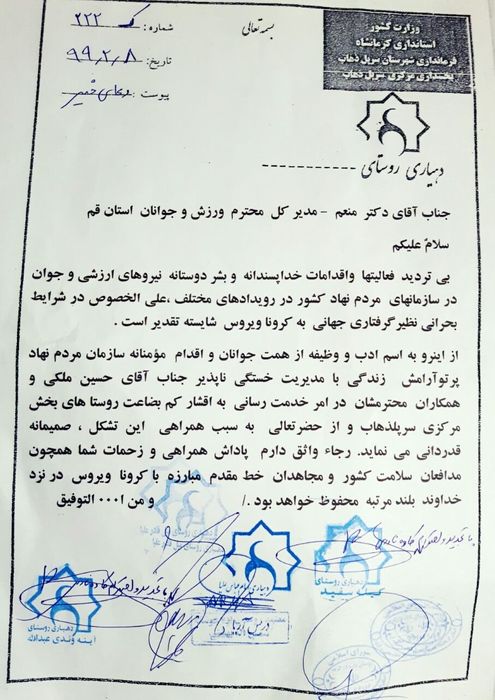 بسمه تعالی
وزارت کشور
استانداری کرمانشاه
فرمانداری شهرستان سرپل ذهاب
بخشداری مرکزی سرپل ذهاب
شماره: ۲۲۲
تاریخ: ۹۹٫۲٫۸
پیوست: دعای خیر
دهیاری روستای -----------
جناب آقای دکتر منعم - مدیر کل محترم ورزش و جوانان استان قم
سلامُ علیکم
بی تردید فعالیتها واقدامات خداپسندانه و بشر دوستانه نیروهای ارزشی و جوان
در سازمانهای مردم نهاد کشور در رویدادهای مختلف ،علی الخصوص در شرایط
بحرانی نظیرگرفتاری جهانی به کرونا ویروس شایسته تقدیر است .
از اینرو به اسم ادب و وظیفه از همت جوانان و اقدام مؤمنانه سازمان مردم نهاد
پرتوآرامش زندگی با مدیریت خستگی ناپذیر جناب آقای حسین ملکی و
همکاران محترمشان در امر خدمت رسانی به اقشار کم بضاعت روستا های بخش
مرکزی سرپلذهاب و از حضرتعالی به سبب همراهی این تشکل ، صمیمانه
قدردانی می نماید. رجاء واثق دارم پاداش همراهی و زحمات شما همچون
مدافعان سلامت کشور و مجاهدان خط مقدم مبارزه با کرونا ویروس در نزد
خداوند بلند مرتبه محفوظ خواهد بود ./ و من ا۰۰۰ التوفیق
دهیاری روستای
دهیاری روستای
دهیاری روستای